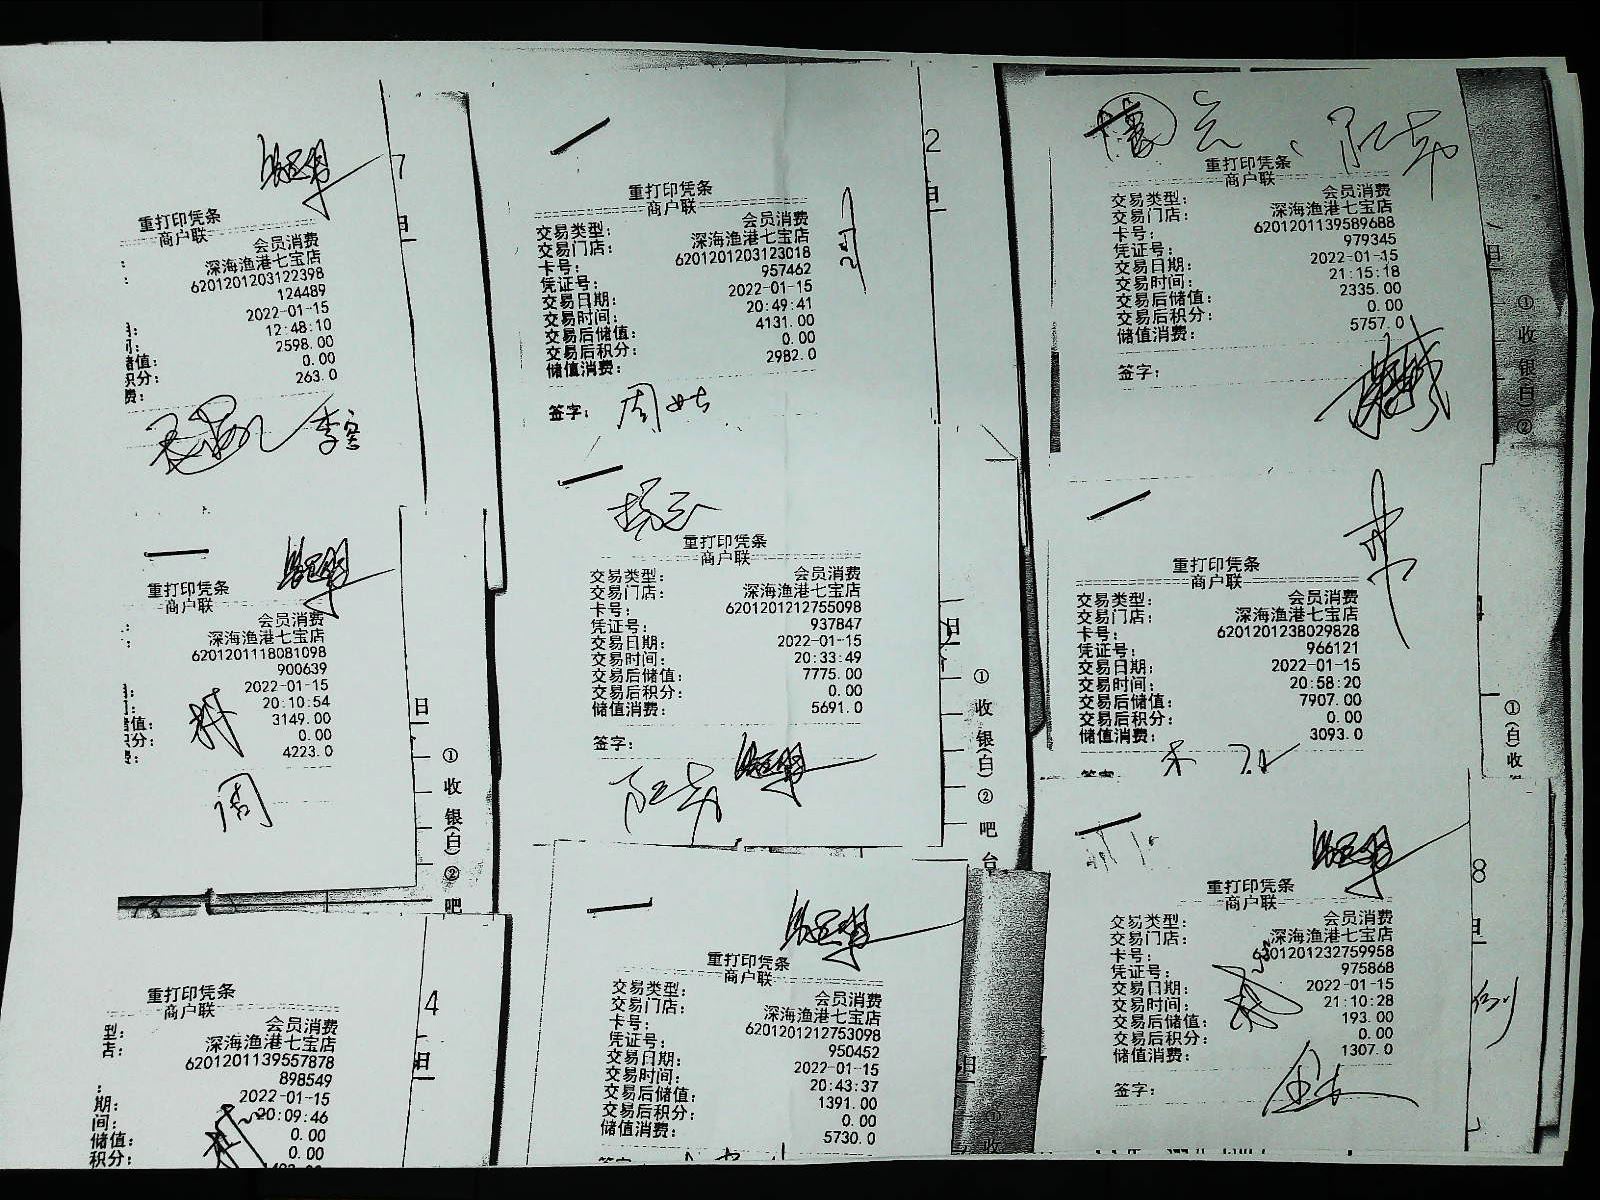 7
日
重打印凭条
商户联
会员消费
深海渔港七宝店
6201201203122398
124489
2022-01-15
12:48:10
2598.00
储值: 0.00
积分: 263.0
费:
李
重打印凭条
商户联
会员消费
深海渔港七宝店
6201201118081098
900639
2022-01-15
20:10:54
3149.00
储值: 0.00
积分: 4223.0
费:
周
日
①收银(白)②吧
重打印凭条
商户联
型: 会员消费
店: 深海渔港七宝店
6201201139557878
898549
期: 2022-01-15
间: 20:09:46
储值: 0.00
积分: 0.00
4
日
2
日
重打印凭条
商户联
交易类型: 会员消费
交易门店: 深海渔港七宝店
卡号: 6201201203123018
凭证号: 957462
交易日期: 2022-01-15
交易时间: 20:49:41
交易后储值: 4131.00
交易后积分: 0.00
储值消费: 2982.0
签字: 周
杨
重打印凭条
商户联
交易类型: 会员消费
交易门店: 深海渔港七宝店
卡号: 6201201212755098
凭证号: 937847
交易日期: 2022-01-15
交易时间: 20:33:49
交易后储值: 7775.00
交易后积分: 0.00
储值消费: 5691.0
签字:
日
①收银(白)②吧台
重打印凭条
商户联
交易类型: 会员消费
交易门店: 深海渔港七宝店
卡号: 6201201212753098
凭证号: 950452
交易日期: 2022-01-15
交易时间: 20:43:37
交易后储值: 1391.00
交易后积分: 0.00
储值消费: 5730.0
签字
日
①收
重打印凭条
商户联
交易类型: 会员消费
交易门店: 深海渔港七宝店
卡号: 6201201139589688
凭证号: 979345
交易日期: 2022-01-15
交易时间: 21:15:18
交易后储值: 2335.00
交易后积分: 0.00
储值消费: 5757.0
签字:
日
①收银(白)②
重打印凭条
商户联
交易类型: 会员消费
交易门店: 深海渔港七宝店
卡号: 6201201238029828
凭证号: 966121
交易日期: 2022-01-15
交易时间: 20:58:20
交易后储值: 7907.00
交易后积分: 0.00
储值消费: 3093.0
签字
①(白)收
重打印凭条
商户联
交易类型: 会员消费
交易门店: 深海渔港七宝店
卡号: 6201201232759958
凭证号: 975868
交易日期: 2022-01-15
交易时间: 21:10:28
交易后储值: 193.00
交易后积分: 0.00
储值消费: 1307.0
签字:
8
日